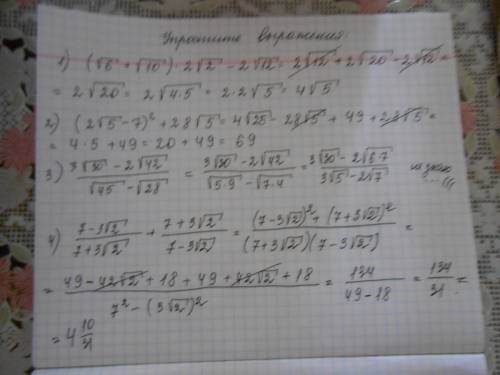 Упростите выражения:
1) (√6 + √10) · 2√2 − 2√12 = 2√12 + 2√20 − 2√12 =
= 2√20 = 2√4·5 = 2·2√5 = 4√5
2) (2√5 − 7)² + 28√5 = 4√25 − 28√5 + 49 + 28√5 =
= 4·5 + 49 = 20 + 49 = 69
3) (3√30 − 2√42)/(√45 − √28) = (3√30 − 2√42)/(√5·9 − √7·4) = (3√30 − 2√6·7)/(3√5 − 2√7) не знаю
4) (7 − 3√2)/(7 + 3√2) + (7 + 3√2)/(7 − 3√2) = ((7 − 3√2)² + (7 + 3√2)²)/((7 + 3√2)(7 − 3√2)) =
= (49 − 42√2 + 18 + 49 + 42√2 + 18)/(7² − (3√2)²) = 134/(49 − 18) = 134/31 =
= 4 10/31